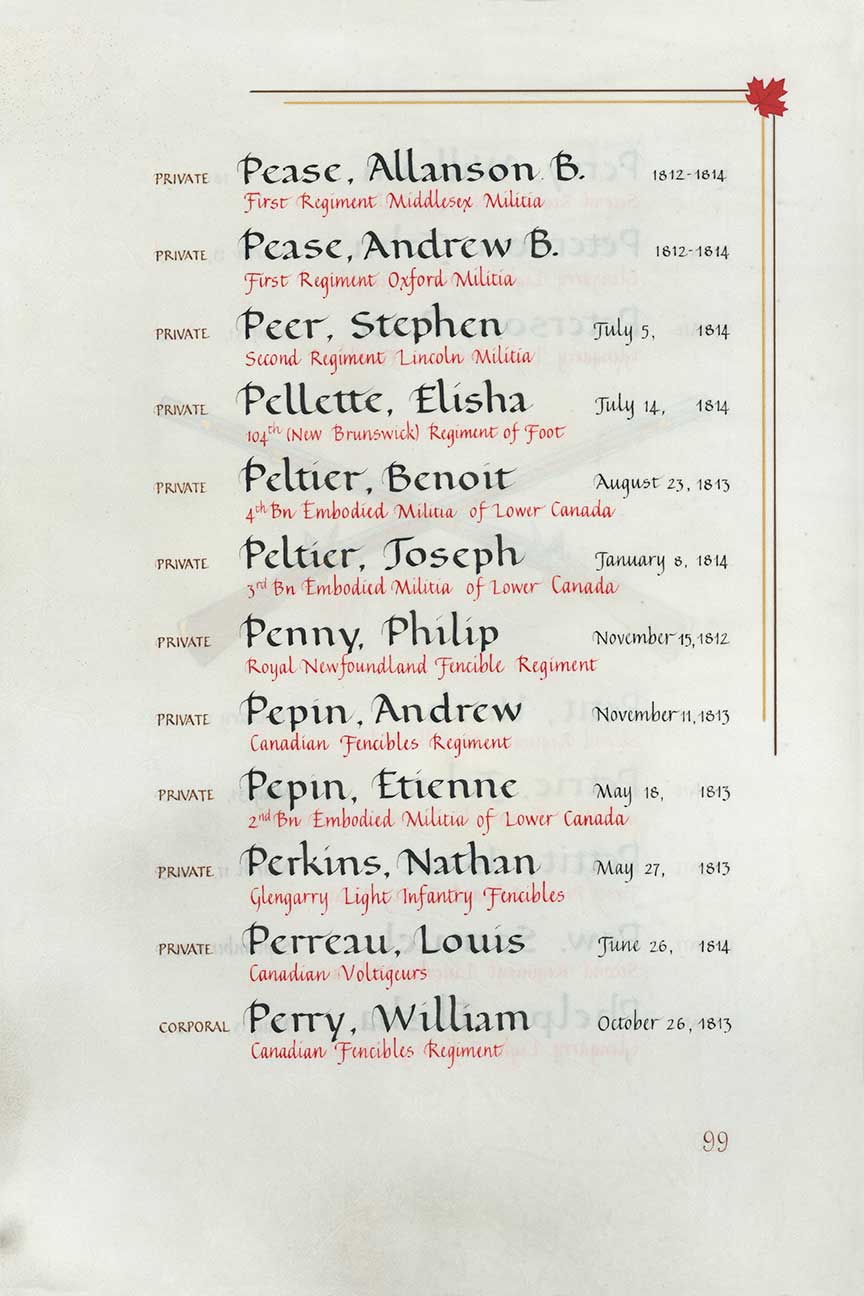 PRIVATE Pease, Allanson B. 1812-1814
First Regiment Middlesex Militia
PRIVATE Pease, Andrew B. 1812-1814
First Regiment Oxford Militia
PRIVATE Peer, Stephen July 5, 1814
Second Regiment Lincoln Militia
PRIVATE Pellette, Elisha July 14, 1814
104th (New Brunswick) Regiment of Foot
PRIVATE Peltier, Benoit August 23, 1813
4th Bn Embodied Militia of Lower Canada
PRIVATE Peltier, Joseph January 8, 1814
3rd Bn Embodied Militia of Lower Canada
PRIVATE Penny, Philip November 15, 1812
Royal Newfoundland Fencible Regiment
PRIVATE Pepin, Andrew November 11, 1813
Canadian Fencibles Regiment
PRIVATE Pepin, Etienne May 18, 1813
2nd Bn Embodied Militia of Lower Canada
PRIVATE Perkins, Nathan May 27, 1813
Glengarry Light Infantry Fencibles
PRIVATE Perreau, Louis June 26, 1814
Canadian Voltigeurs
CORPORAL Perry, William October 26, 1813
Canadian Fencibles Regiment
99